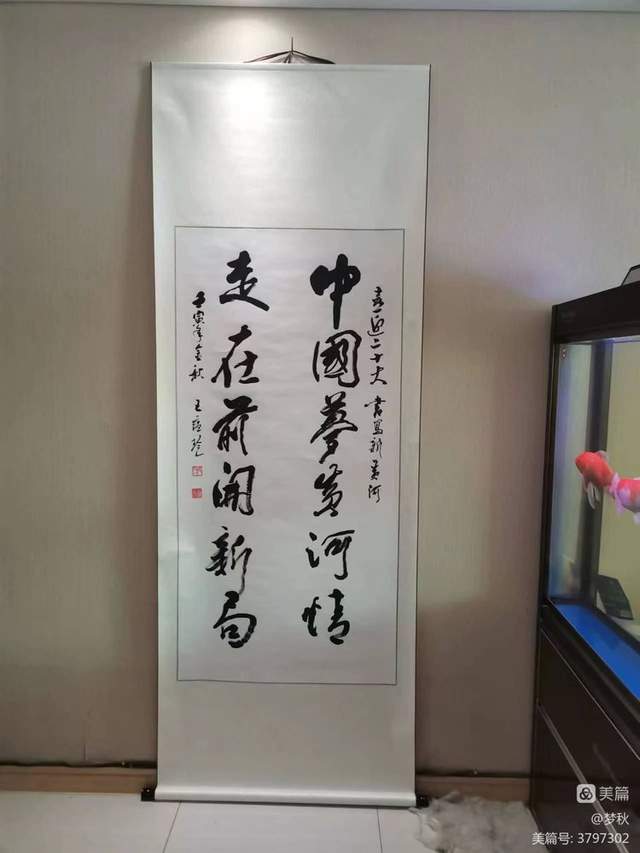 喜迎二十大 書寫新黃河
中國夢黃河情
走在前開新局
壬寅年金秋 王
美篇
@梦秋
美篇号: 3797302